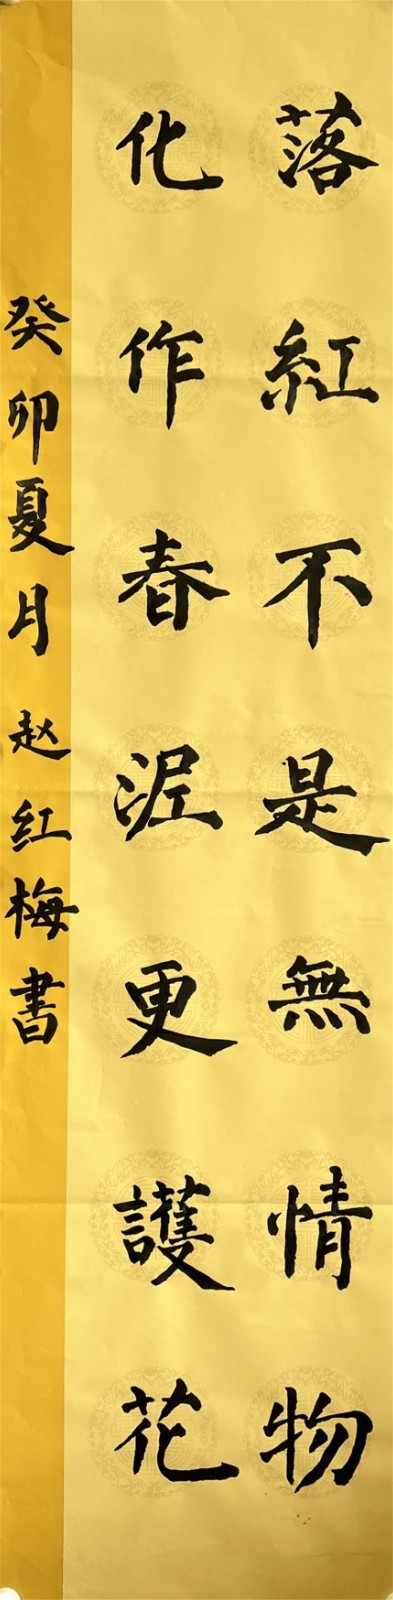 落紅不是無情物
化作春泥更護花
癸卯夏月 赵红梅書